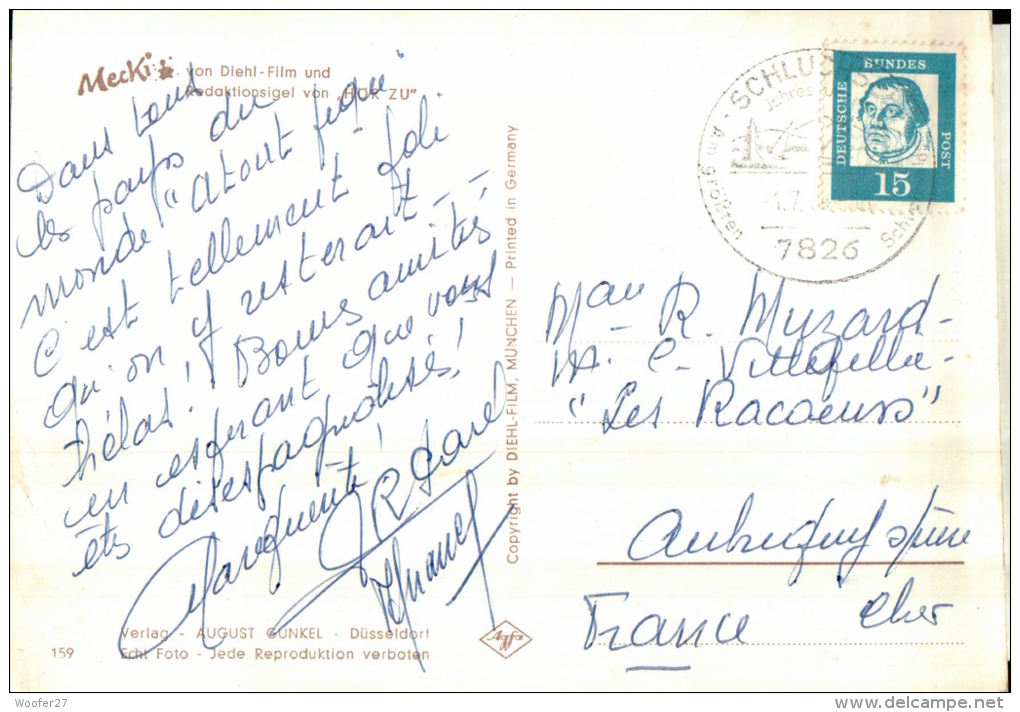 Mecki
von Diehl-Film und
Redaktionsigel von "HÖR ZU"
Dans tous
les pays du
monde "atout
C'est tellement joli
qu'on y resterait -
hélas! Bonnes amitiés
en espérant que vous
êtes désespagnolisés!
Marguerite!
Verlag - AUGUST GUNKEL · Düsseldorf
159 Echt Foto - Jede Reproduktion verboten
Copyright by DIEHL-FILM, MÜNCHEN — Printed in Germany
Agfa
SCHLUCHS
Jahres
Am größten
1.7.
7826
DEUTSCHE
BUNDES
POST
15
R. Muzard -
"Les
Aubigny s/Nère
Cher
France
Woofer27
delcampe.net